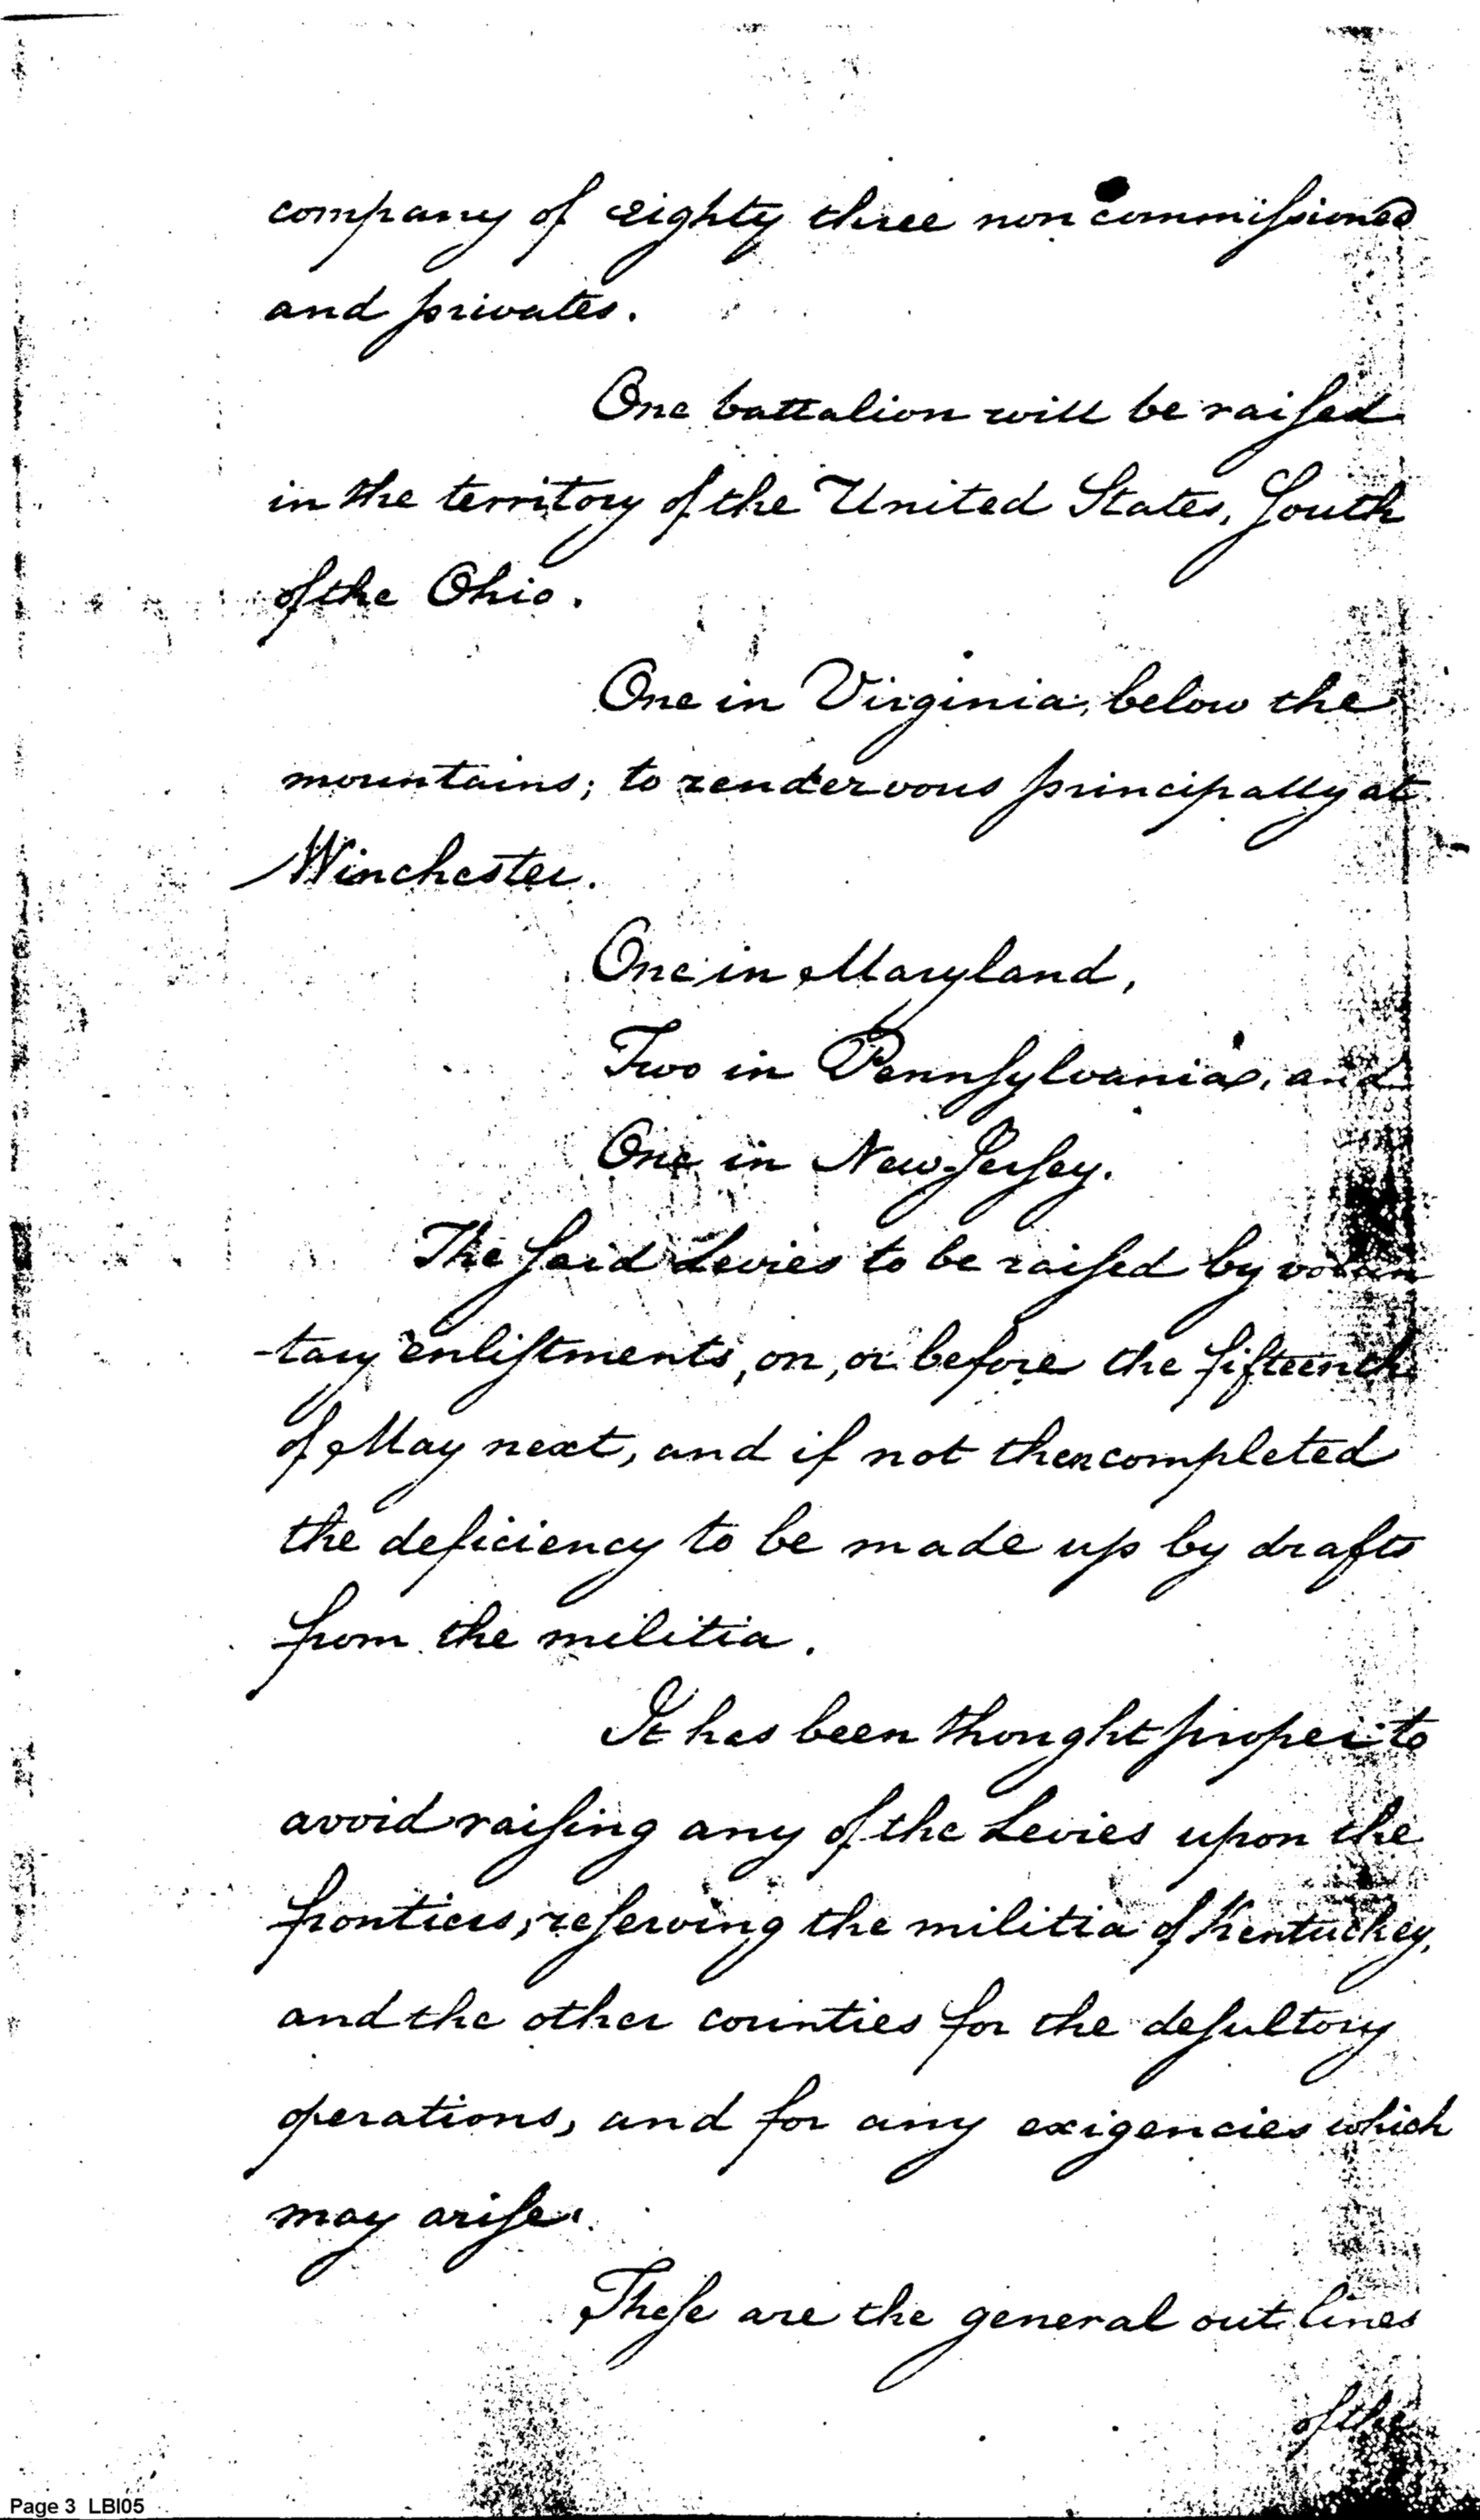 company of eighty three non commissioned
and privates.
One battalion will be raised
in the territory of the United States, South
of the Ohio.
One in Virginia, below the
mountains; to rendezvous principally at
Winchester.
One in Maryland,
Two in Pennsylvania, and
One in New Jersey.
The said Levies to be raised by volun
-tary enlistments, on, or before the fifteenth
of May next, and if not then completed
the deficiency to be made up by drafts
from the militia.
It has been thought proper to
avoid raising any of the Levies upon the
frontiers, reserving the militia of Kentuckey,
and the other counties for the desultory
operations, and for any exigencies which
may arise.
These are the general out lines
of the
Page 3 LBI05